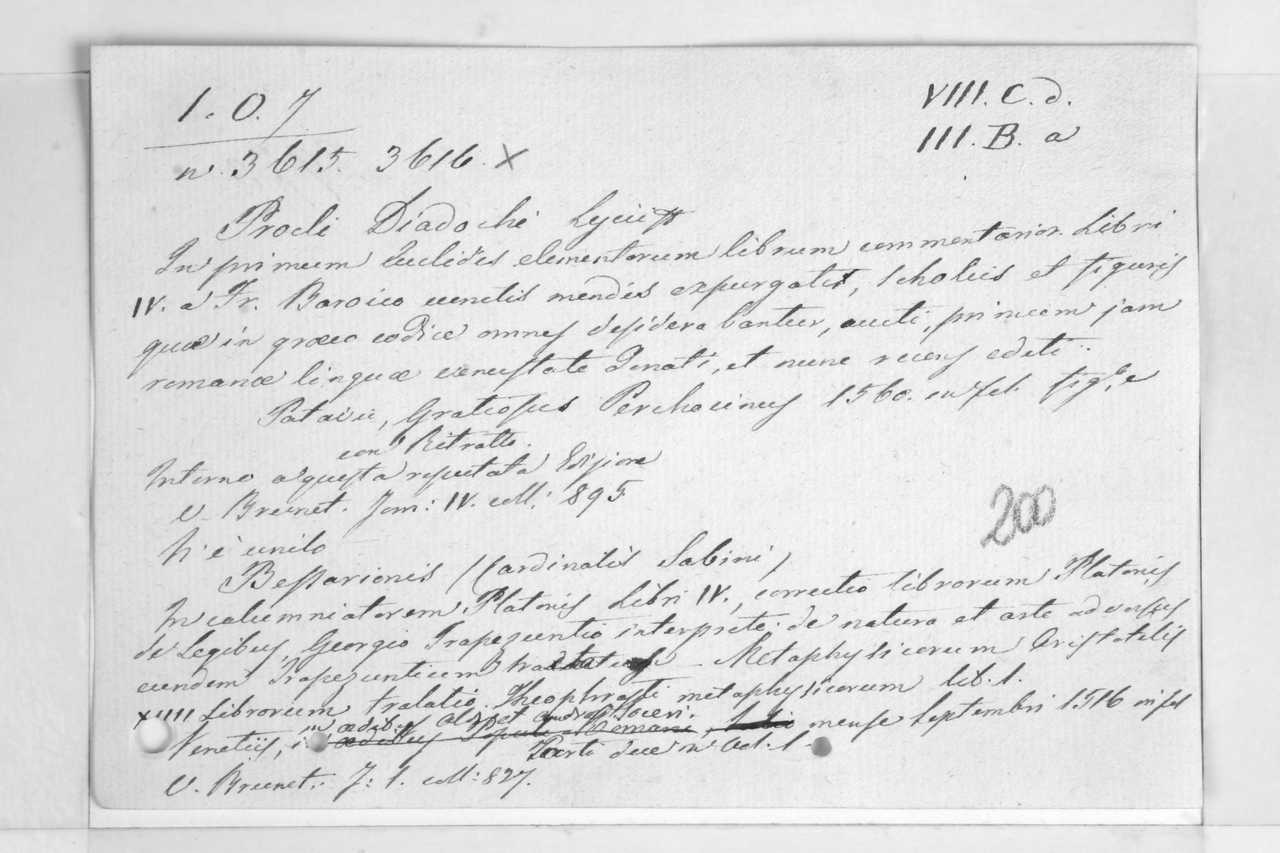 1. O. 7
VIII. C. d.
n. 3615. 3616. X
III. B. a
Procli Diadochi Lycii
In primum Euclidis elementorum librum commentarior. Libri
IV. a Fr. Baroico venetis mendis expurgati, scholiis et figuris
quæ in græco codice omnes desiderabantur, aucti, primum jam
romanæ linguæ venustate donati, et nunc recens editi.
Patavii, Gratiosus Perchacinus 1560. in fol. fig.e
con Ritratto.
Intorno a questa reputata Edizione
V. Brunet. Tom: IV. coll: 895
200
N' è unito
Bessarionis (Cardinalis Sabini)
In calumniatorem Platonis Libri IV., correctio librorum Platonis
de Legibus, Georgio Trapezuntio interprete: de natura et arte adversus
eundem Trapezuntium tractatus - Metaphysicorum Aristotelis
XIIII Librorum tralatio. Theophrasti metaphysicorum lib. 1.
in ædib. Aldi et Andreæ Soceri.
Venetiis, in ædibus mense Septembri 1516 in fol
Parti due in Vol. 1.
V. Brunet. T: 1. coll: 827.